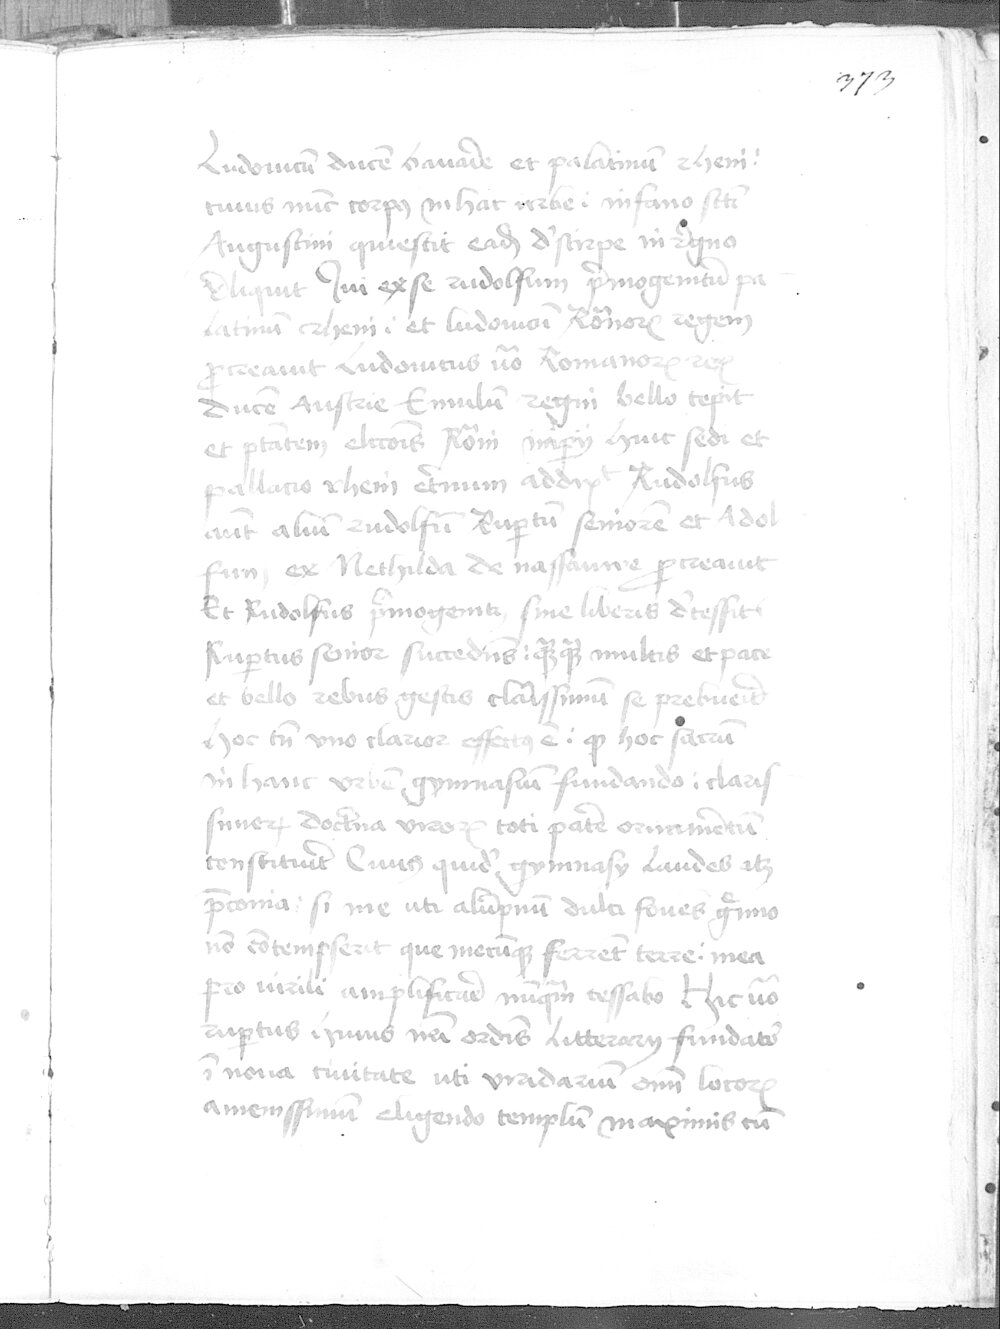 373
Ludovicū ducē bavarie et palatinū rheni :
cuius nūc corpꝰ in hac urbe i in fano scti
Augustini quiescit eadē d' stirpe in regno
reliquit Qui ex se rudolfum p̄mogenitū pa
latinū rheni i et ludovicū Rōnorꝝ regem
procreavit Ludovicus vō Romanorꝝ rex
ducē Austrie Emulū regni bello cepit
et ptātem elctoris Rōni impery huic sedi et
pallacio rheni et'num addixt Rudolfus
aut alium rudolfū Ruptū seniorē et Adol
fum, ex Methilda de nassauwe procreavit
Et Rudolfus p̄mogenitꝰ sine liberis d'cessit
Ruptus senior succedēs : qꝫqꝫ multis et pace
et bello rebus gestis clarissimū se prebuerit
hoc tn̄ uno clarior effectꝰ ē : qp hoc sacrū
in hanc urbē gymnasiū fundando i claris
simorꝝ doctrina virorꝝ toti patrie ornamētū
constituit Cuius quidē gymnasy laudes atqꝫ
p̄conia : si me uti alūpnū dulci fovens gremio
nō cōtempserit que mecūqꝫ ferret terre : mea
pro virili amplificare nūqm̄ cessabo Hic vō
ruptus huius nrī ordis litterary fundator
ī nova civitate uti viridariū omī locorꝝ
amenissimū eligendo templū maximis cū